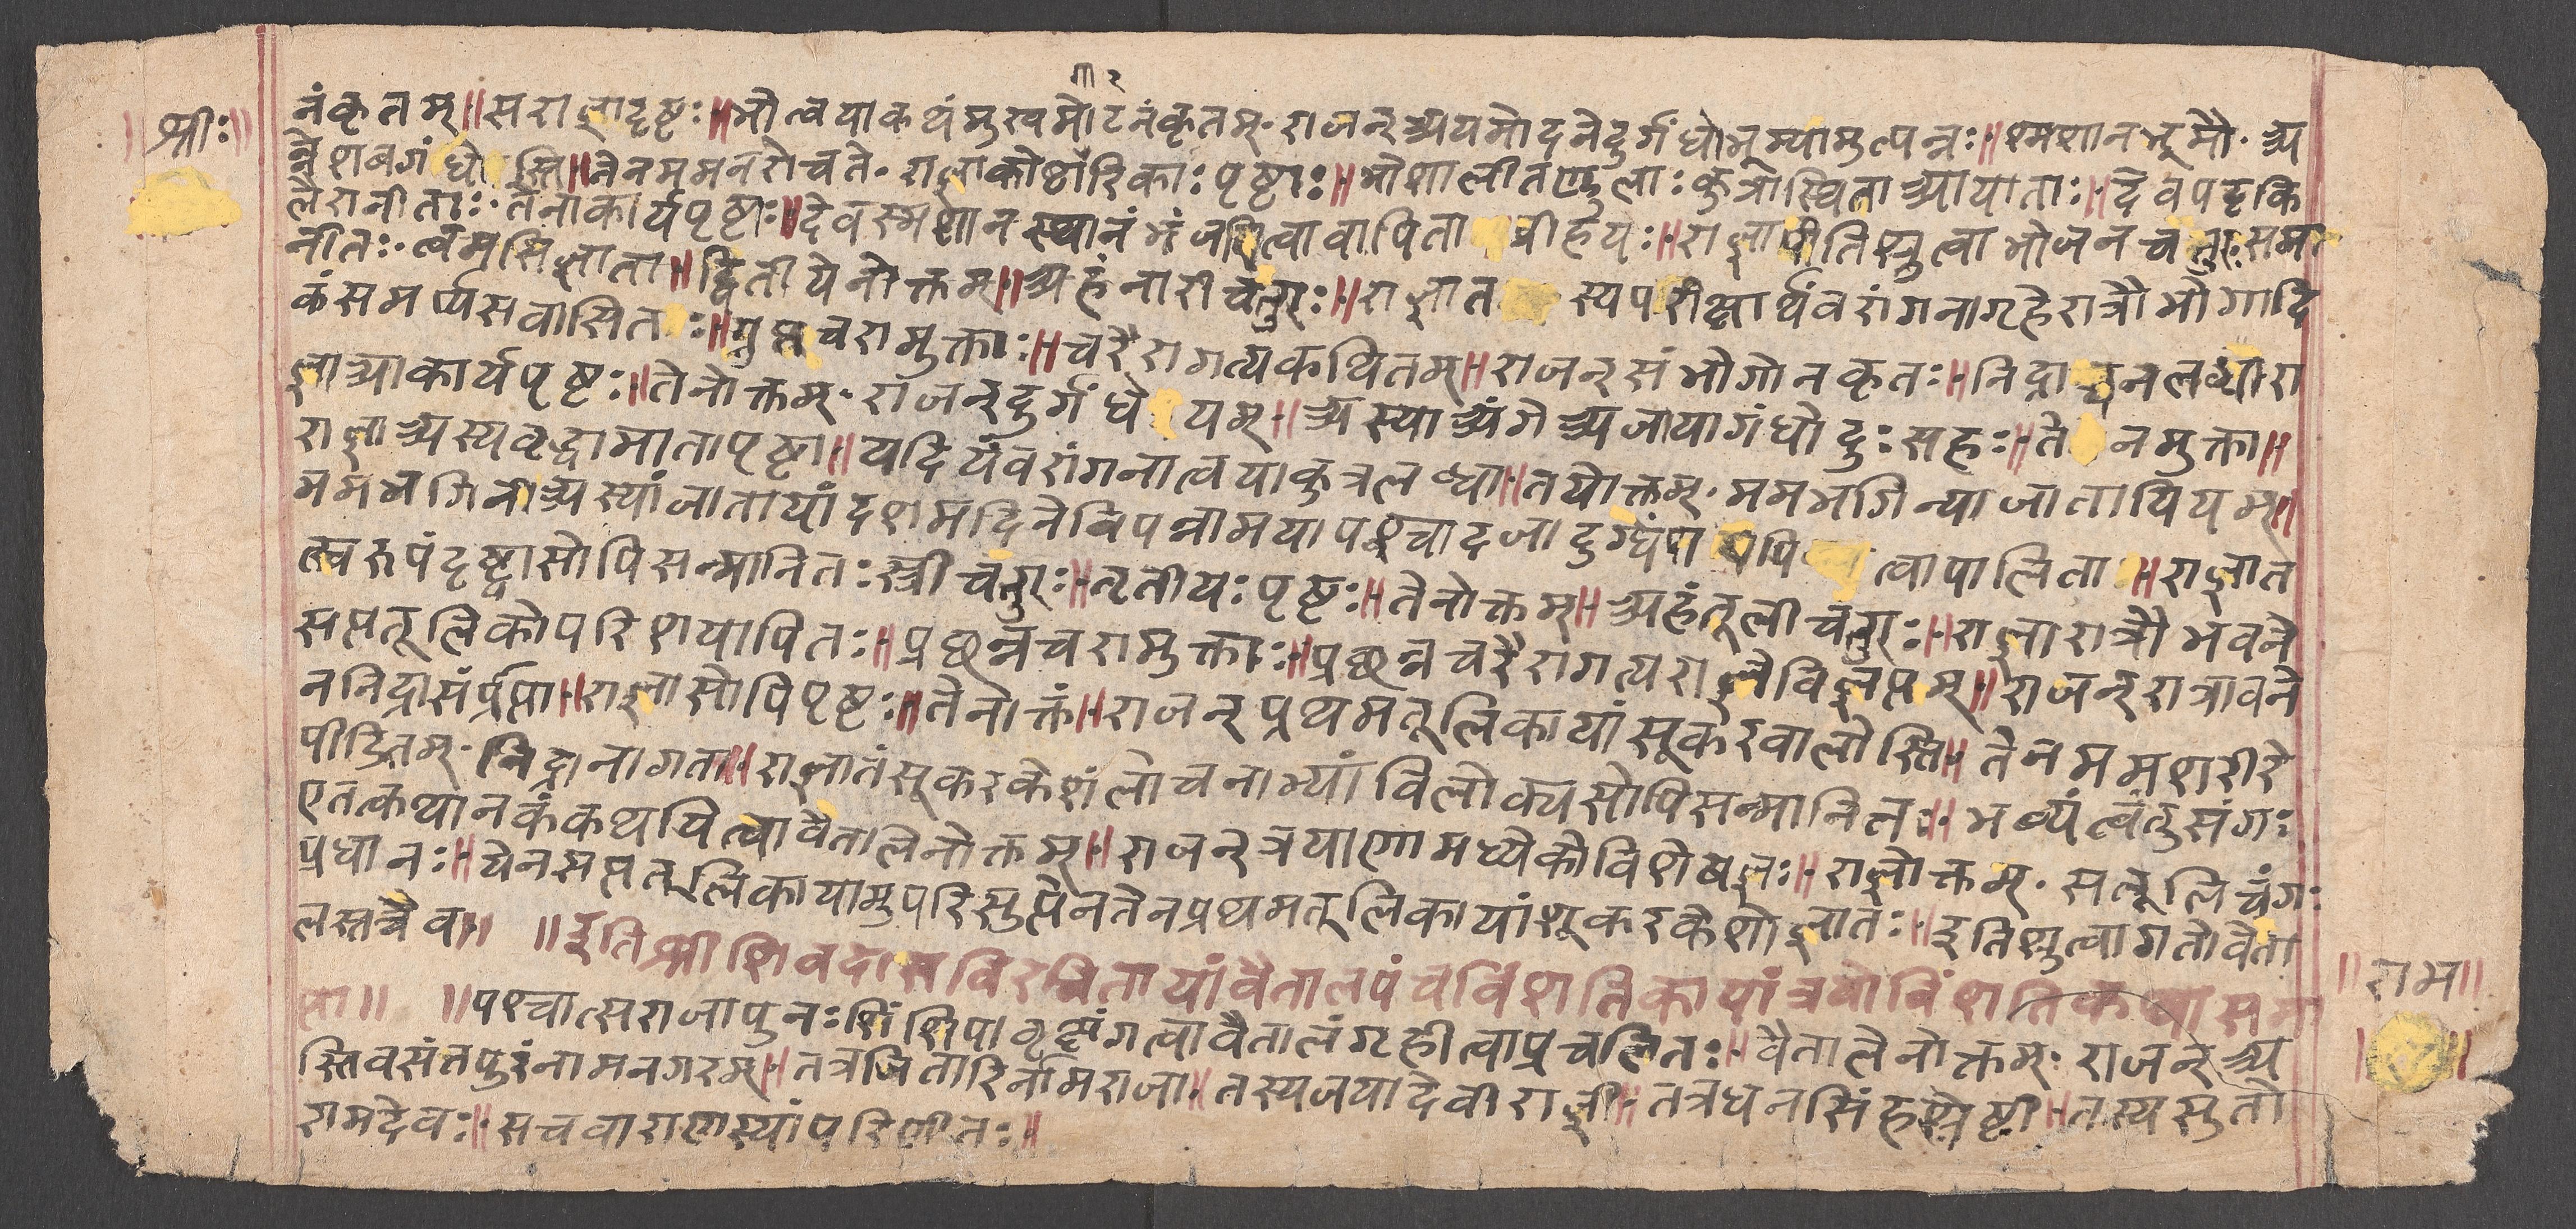 ा २
॥श्रीः॥
नंकृतम्॥सराज्ञादृष्टः॥भोत्वयाकथंमुखमोटनंकृतम्· राजन्अयमोदनेदुर्गंधोभूम्यामुत्पन्नः॥श्मशानभूमौ· अ
न्नेशबगंधोस्ति॥तेनममनरोचते· राज्ञाकोष्ठारिकाः पृष्टाः॥भोशालीतण्डुलाः कुत्रास्थिताआयाताः॥देवपट्टकि
लैरानीताः· तेनाकार्यपृष्टाः॥देवस्मशानस्थानंभंजयित्वावापिताव्रीहयः॥राज्ञापीतिश्रुत्वाभोजनचतुरःसमा
नीतः· त्वमसिज्ञाता॥द्वितीयेनोक्तम्॥अहंनारीचतुरः॥राज्ञातस्यपरीक्षार्थंवरांगनागृहेरात्रौभोगादि
कंसमर्प्यसवासितः॥गुप्तचरामुक्ताः॥चरैरागत्यकथितम्॥राजन्संभोगोनकृतः॥निद्राचनलब्धारा
ज्ञाआकार्यपृष्टः॥तेनोक्तम्· राजन्दुर्गंधेयम्॥अस्याअंगेअजायागंधोदुःसहः॥तेनमुक्ता॥
राज्ञाअस्यवृद्धामातापृष्टा॥यदियंवरांगनात्वयाकुत्रलब्धा॥तयोक्तम्· ममभगिन्याजातायियम्॥
ममभगिनीअस्यांजातायांदशमदिनेविपन्नामयापश्चादजादुग्धंपायित्वापालिता॥राज्ञात
त्स्वरुपंदृष्ट्वासोपिसन्मानितःस्त्रीचतुरः॥तृतीयःपृष्टः॥तेनोक्तम्॥अहंतूलीचतुरः॥राज्ञारात्रौभवने
सप्ततूलिकोपरिशयापितः॥प्रछन्नचरामुक्ताः॥प्रछन्नचरैरागत्यराज्ञेविज्ञप्तम्॥राजन्रात्रावने
ननिद्रासंर्प्राप्ता॥राज्ञासोपिपृष्टः॥तेनोक्तं॥राजन्प्रथमतूलिकायांसूकरवालोस्ति॥तेनममशरीरे
पीडितम्· निद्रानागता॥राज्ञातंसूकरकेशंलोचनाभ्यांविलोक्यसोपिसन्मानितः॥भव्यंत्वंतुसंगः
एतत्कथानकंकथयित्वावैतालेनोक्तम्॥राजन्त्रयाणामध्येकोविशेषज्ञः॥राज्ञोक्तम्· सतूलिचंगः
प्रधानः॥येनसप्ततूलिकायामुपरिसुप्तेनतेनप्रथमतूलिकायांशूकरकेशोज्ञातः॥इतिश्रुत्वागतोवैता
लस्तत्रैव॥ ॥इतिश्रीशिवदासविरचितायांवैतालपंचविंशतिकायांत्रयोविंशतिकथासमा
प्ता॥ ॥पश्चात्सराजापुनःशिंशिपावृक्षंगत्वावैतालंगृहीत्वाप्रचलितः॥वैतालेनोक्तम्· राजन्अ
स्तिवसंतपुरंनामनगरम्॥तत्रजितारिर्नामराजा· तस्यजयादेवीराज्ञी॥तत्रधनसिंहश्रेष्टी॥तस्यसुतो
रामदेवः॥सचवाराणस्यांपरिणीतः॥
॥राम॥